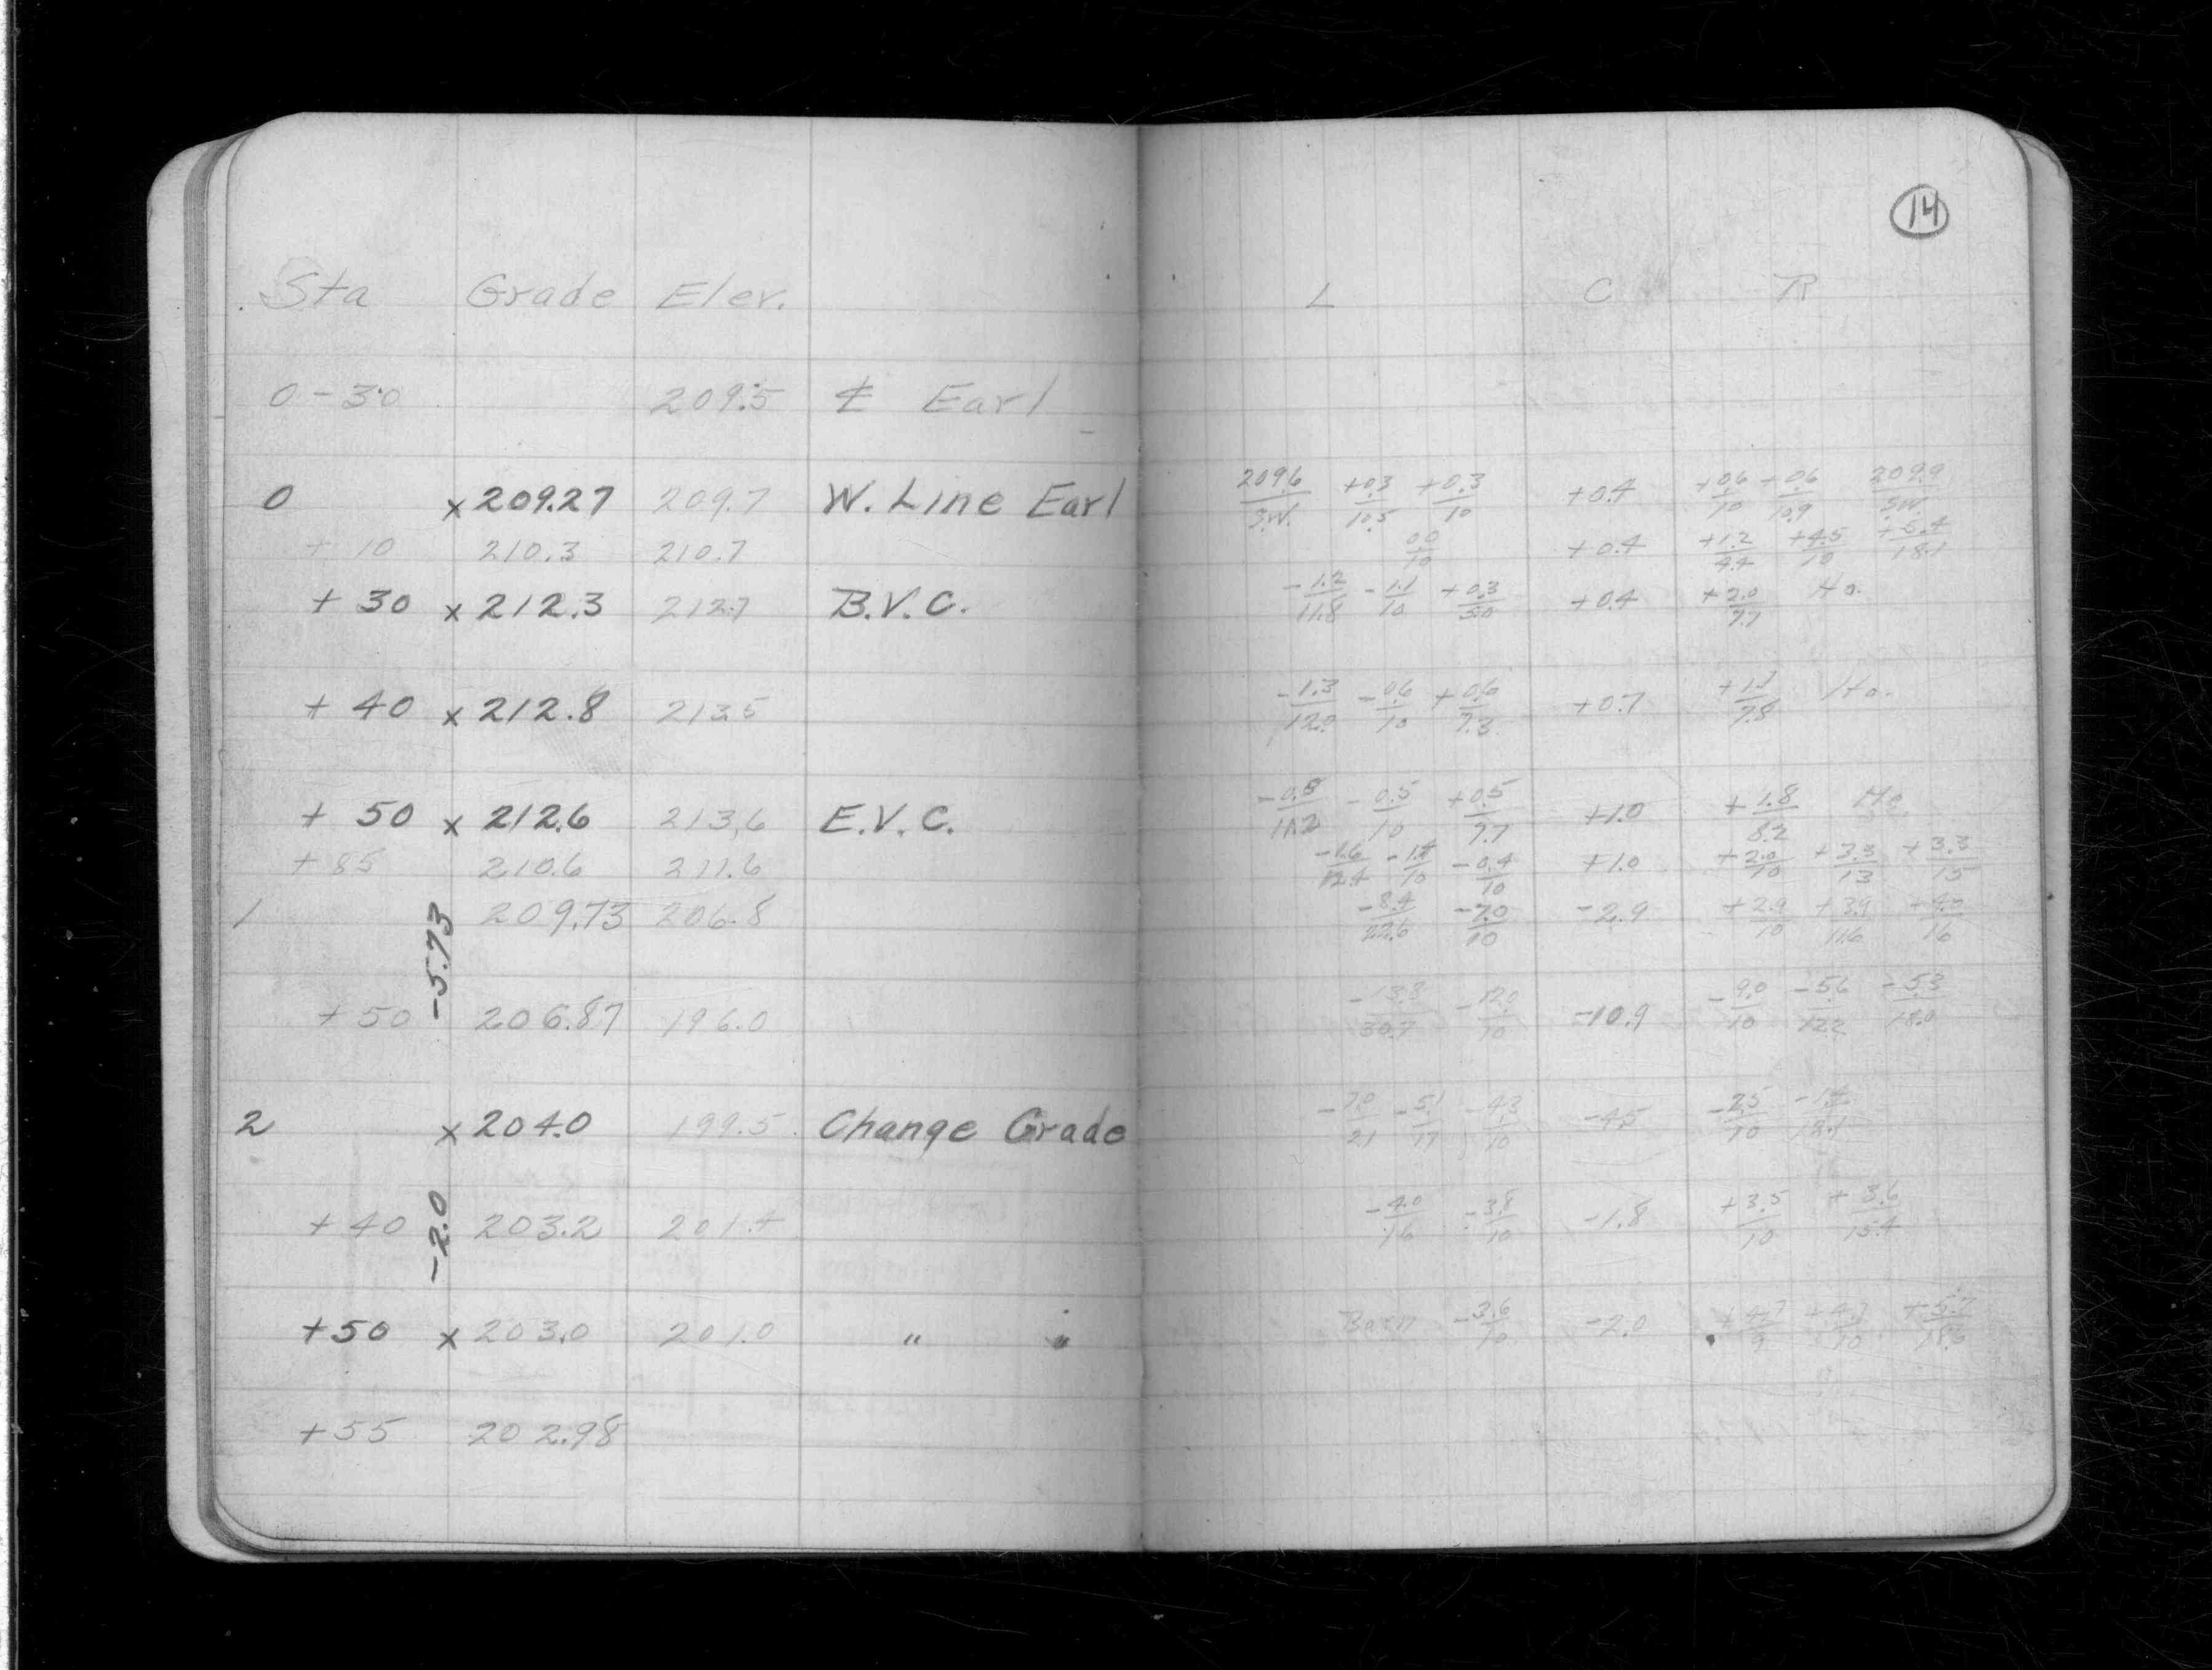 14
Sta Grade Elev. L C R
0-30 209.5 ℄ Earl
0 x 209.27 209.7 W. Line Earl 209.6/S.W. +0.3/10.5 +0.3/10 +0.4 +0.6/10 +0.6/10.9 209.9/S.W.
+ 10 210.3 210.7 0.0/10 +0.4 +1.2/9.4 +4.5/10 +5.4/18.1
+ 30 x 212.3 212.7 B.V.C. -1.2/11.8 -1.1/10 +0.3/5.0 +0.4 +2.0/7.7 Ho.
+ 40 x 212.8 213.5 -1.3/12.0 -0.6/10 +0.6/7.3 +0.7 /7.8 Ho.
+ 50 x 212.6 213.6 E.V.C. -0.8/11.2 -0.5/10 +0.5/7.7 +1.0 +1.8/8.2 Ho.
+ 85 210.6 211.6 -1.6/12.4 -1.4/10 -0.4/10 +1.0 +2.0/10 +3.3/13 +3.3/15
1 209.73 206.8 -8.4/22.6 -7.0/10 -2.9 +2.9/10 +3.9/11.6 +4.0/16
-5.73
+ 50 206.87 196.0 -13.3/30.7 -12.0/10 -10.9 -9.0/10 -5.6/12.2 -5.3/18.0
2 x 204.0 199.5 Change Grade -7.0/21 -5.1/17 -4.3/10 -4.5 -2.5/10 -1.4/18.1
-2.0
+ 40 203.2 201.4 -4.0/16 -3.8/10 -1.8 +3.5/10 +3.6/15.4
+50 x 203.0 201.0 " " Barn -3.6/10 -2.0 +4.7/9 +4.7/10 +5.7/18.6
+55 202.98